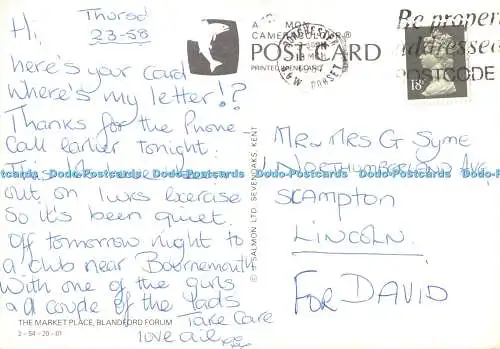 Hi,
Thursd
23-58
here's your card
Where's my letter!?
Thanks for the Phone
Call earlier tonight.
out on 1wks exercise
So it's been quiet.
Off tomorrow night to
a club near Bournemouth
With one of the girls
and a couple of the lads
Take Care
love
THE MARKET PLACE, BLANDFORD FORUM
2-54-20-01
A MON
CAMERACOLOUR®
POST CARD
PRINTED IN
© J SALMON LTD SEVENOAKS, KENT
DORCHESTER
DORSET
Be properly
addressed
POSTCODE
18P
MR & MRS G SYME
NORTHUMBERLAND AVE
SCAMPTON
LINCOLN.
FOR DAVID
Dodo-Postcards.com Dodo-Postcards.com Dodo-Postcards.com Dodo-Postcards.com